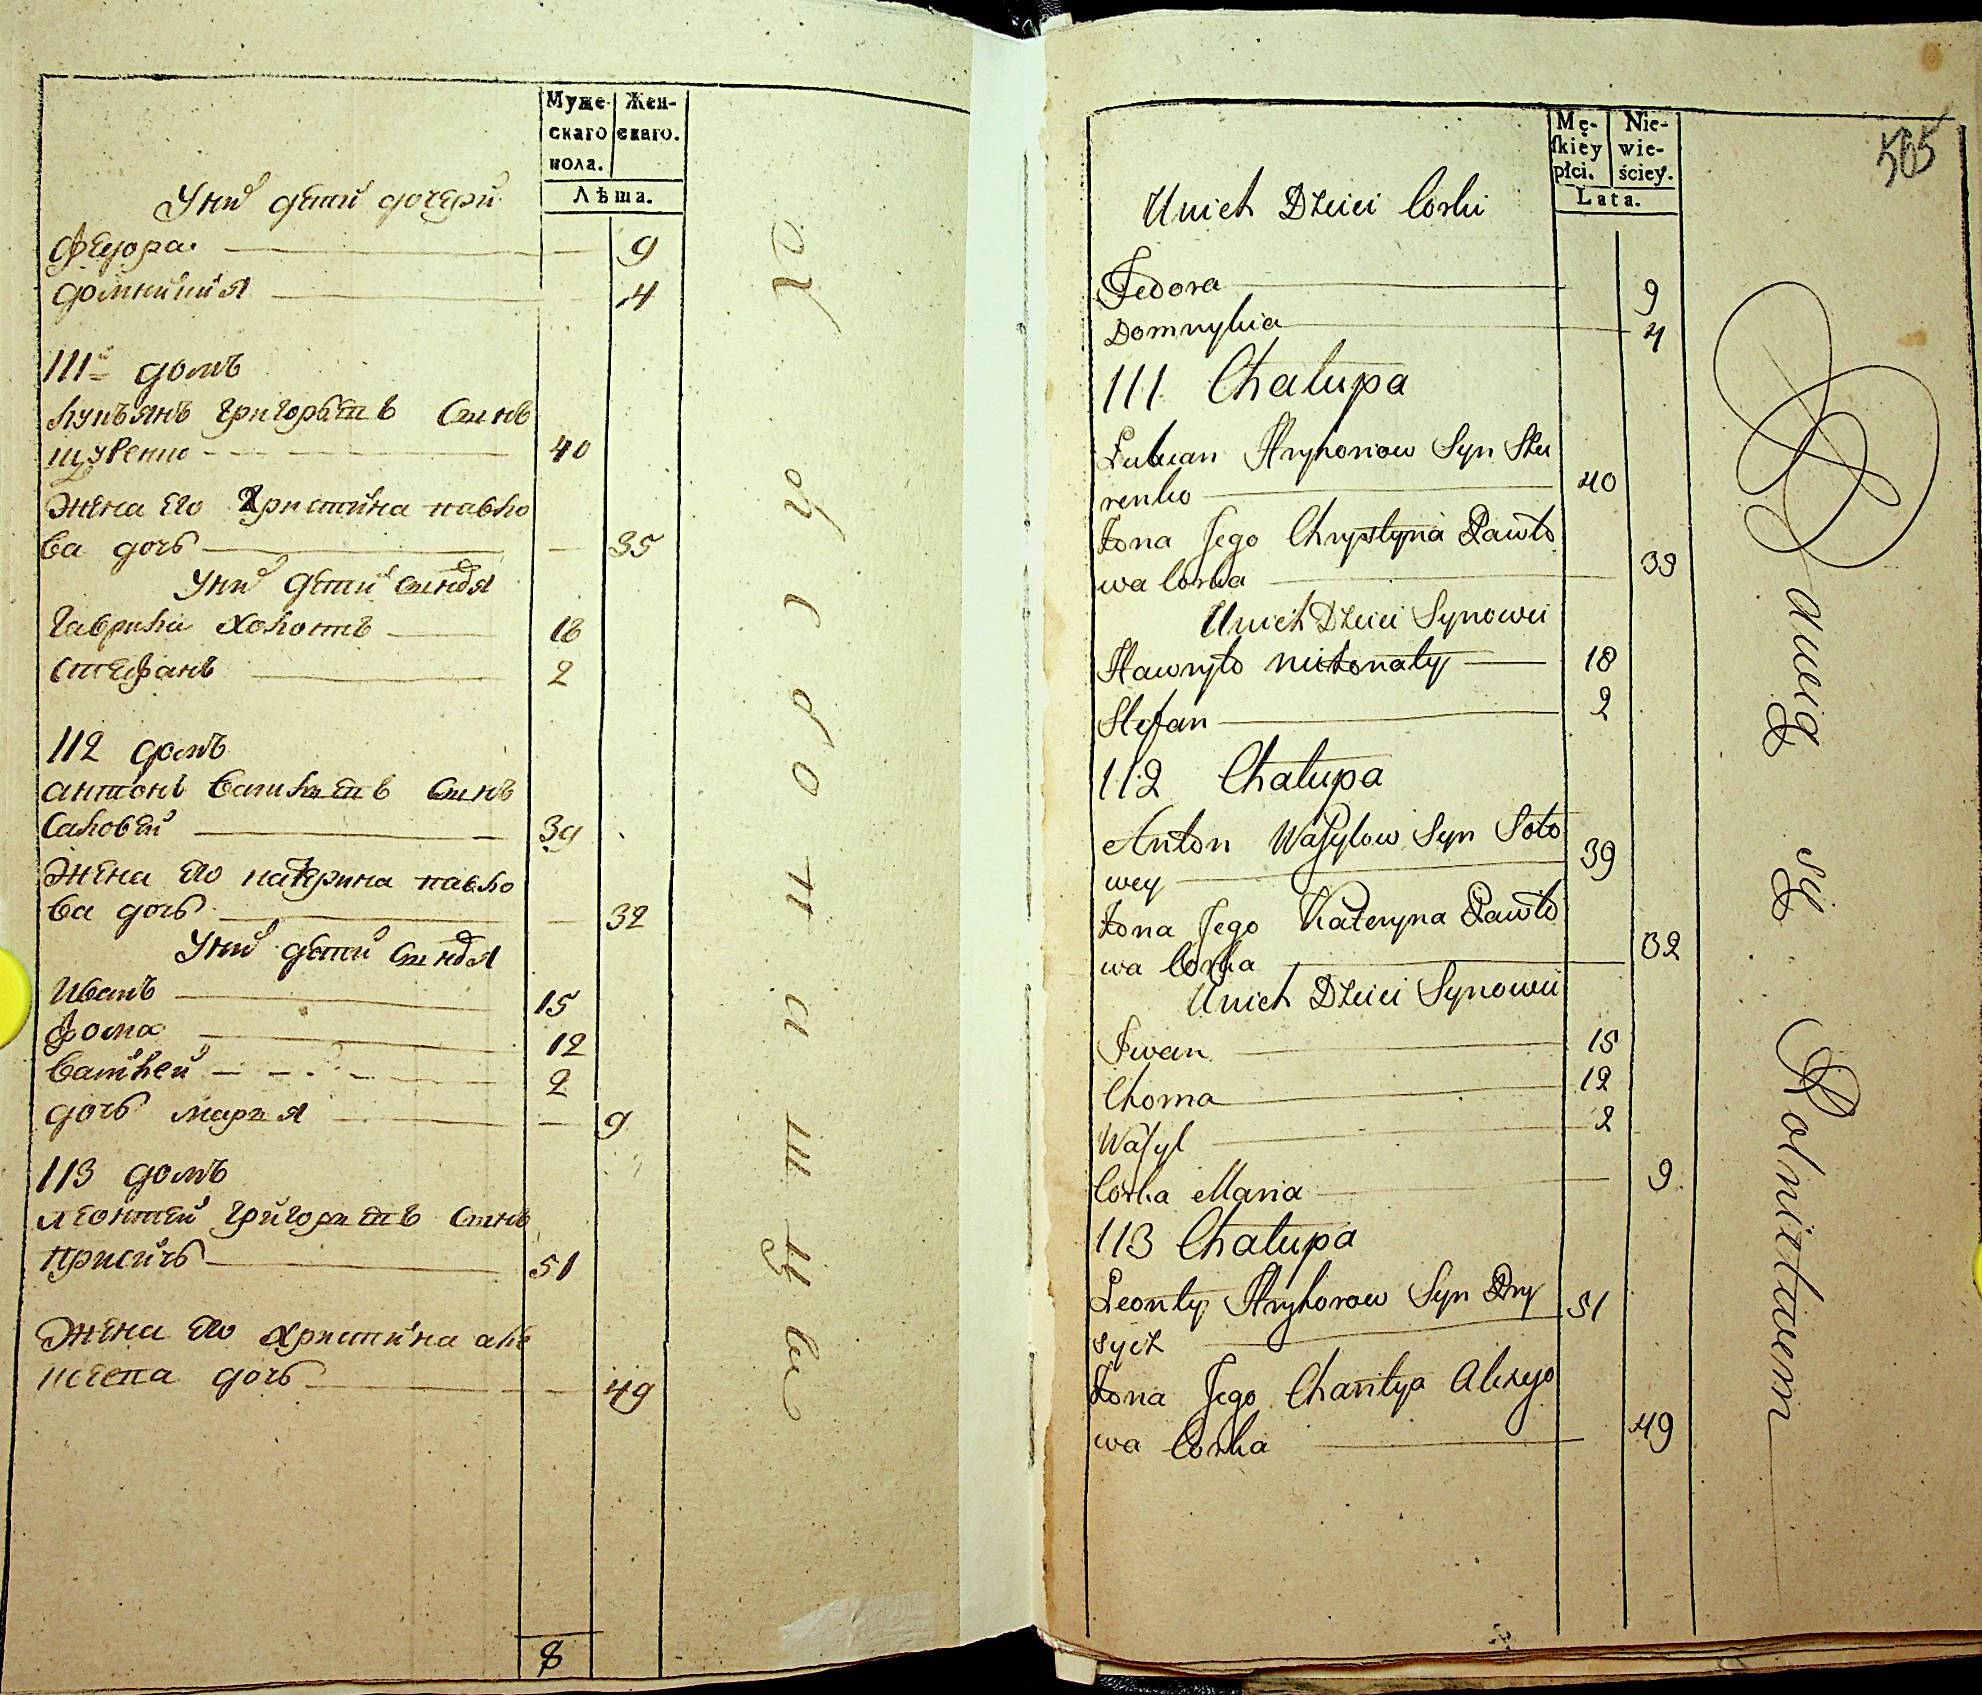 Муже-
скаго
пола.
Жен-
скаго.
Лѣта.
Уних детей дочери
Федора. 9
Домникия 4
111й домъ
Лукъянъ Григорьевъ сынъ
щуренко 40
Жена его Христина павло
ва дочь 35
Уних детей сыновя
Гаврила холостъ 18
Стефанъ 2
112 домъ
антонъ василевъ сынъ
саловей 39
Жена его катерина павло
ва дочь 32
Уних детей сыновя
Иванъ 15
Фома 12
василей 2
дочь маръя 9
113 домъ
леонтей григоревъ сынъ
присичь 51
Жена его христина але
ксеева дочь 49
8
Mę-
ſkiéy
płci.
Nie-
wie-
ściey.
Lata.
565
Unich Dzieci Corki
Fedora 9
Domnykia 4
111 Chałupa
Łukian Hryhorow Syn Sku
renko 40
Żona Jego Chrystyna Pawło
wa Corka 39
Unich Dzieci Synowie
Hawryło nieżonaty 18
Stefan 2
112 Chałupa
Anton Waſylow Syn Soło
wey 39
Żona Jego Kateryna Pawło
wa Corka 32
Unich Dzieci Synowie
Jwan 15
Choma 12
Waſyl 2
Corka Maria 9
113 Chałupa
Leonty Hryhorow Syn Pry
sycz 51
Żona Jego Alexyo
wa Corka 49
Bawią się Rolnictwem